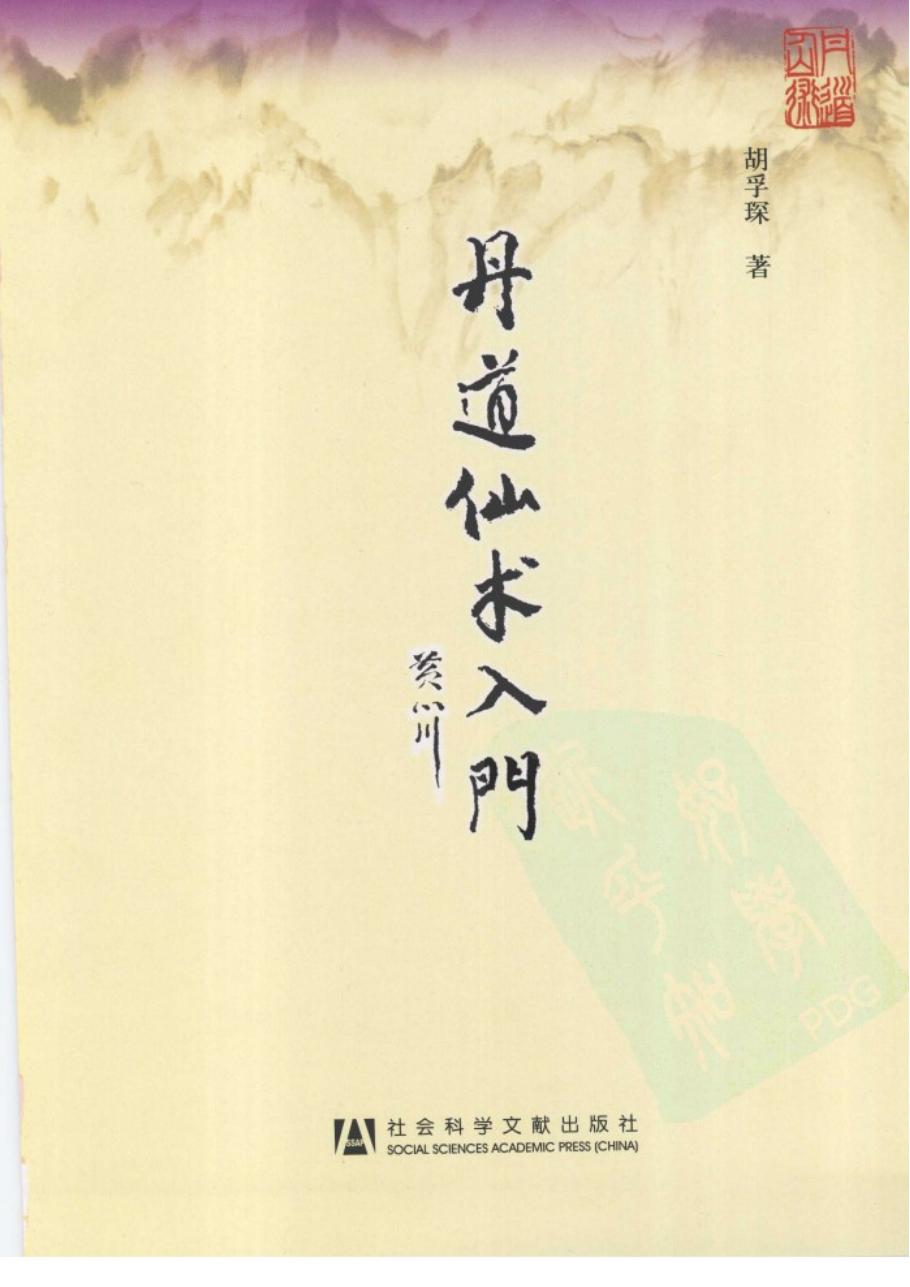 丹道
仙術
胡孚琛 著
丹道仙术入門
黄心川
PDG
社会科学文献出版社
SSAP
SOCIAL SCIENCES ACADEMIC PRESS (CHINA)